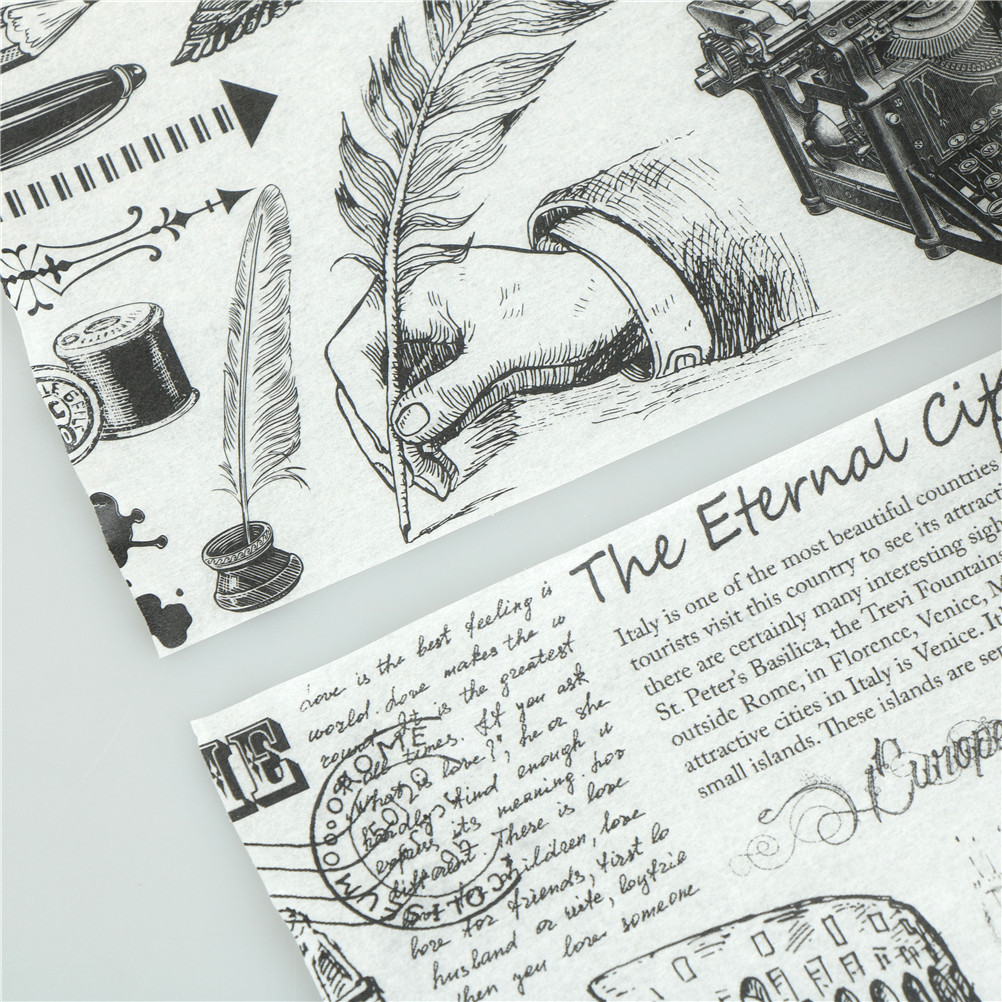 The Eternal Cit
Italy is one of the most beautiful countries
tourists visit this country to see its attract
there are certainly many interesting sigh
St. Peter's Basilica, the Trevi Fountain
outside Rome, in Florence, Venice, M
attractive cities in Italy is Venice. It
small islands. These islands are se
Europe
Love is the best feeling is
world. Love makes the w
round. It is the greatest
all times. If you ask
"What is love?", he or she
hardly find enough w
express its meaning. For
different There is love
for children, love
love for friends, first lo
husband or wife, boyfrie
when you love someone
ROME
ME